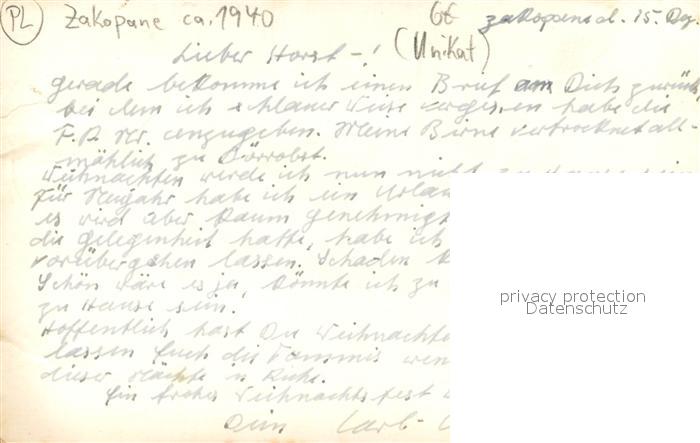 PL Zakopane ca. 1940 6€ Zakopane d. 15. Dez.
Lieber Horst -! (Unikat)
gerade bekomme ich einen Brief an Dich zurück
bei dem ich schlauer Weise vergessen habe die
F.P. Nr. anzugeben. Meine Birne vertrocknet all-
mählich zu Dörrobst.
Weihnachten werde ich nun nicht zu Hause sein
Für Neujahr habe ich ein Urlau
es wird aber kaum genehmigt
die gelegenheit hatte, habe ich
vorübergehen lassen. Schaden
Schön wäre es ja, könnte ich zu
zu Hause sein.
Hoffentlich hast Du Weihnachte
lassen Euch die Tommis wen
dieser Nächte in Ruhe.
Ein frohes Weihnachtsfest
Dein Carl-
privacy protection
Datenschutz